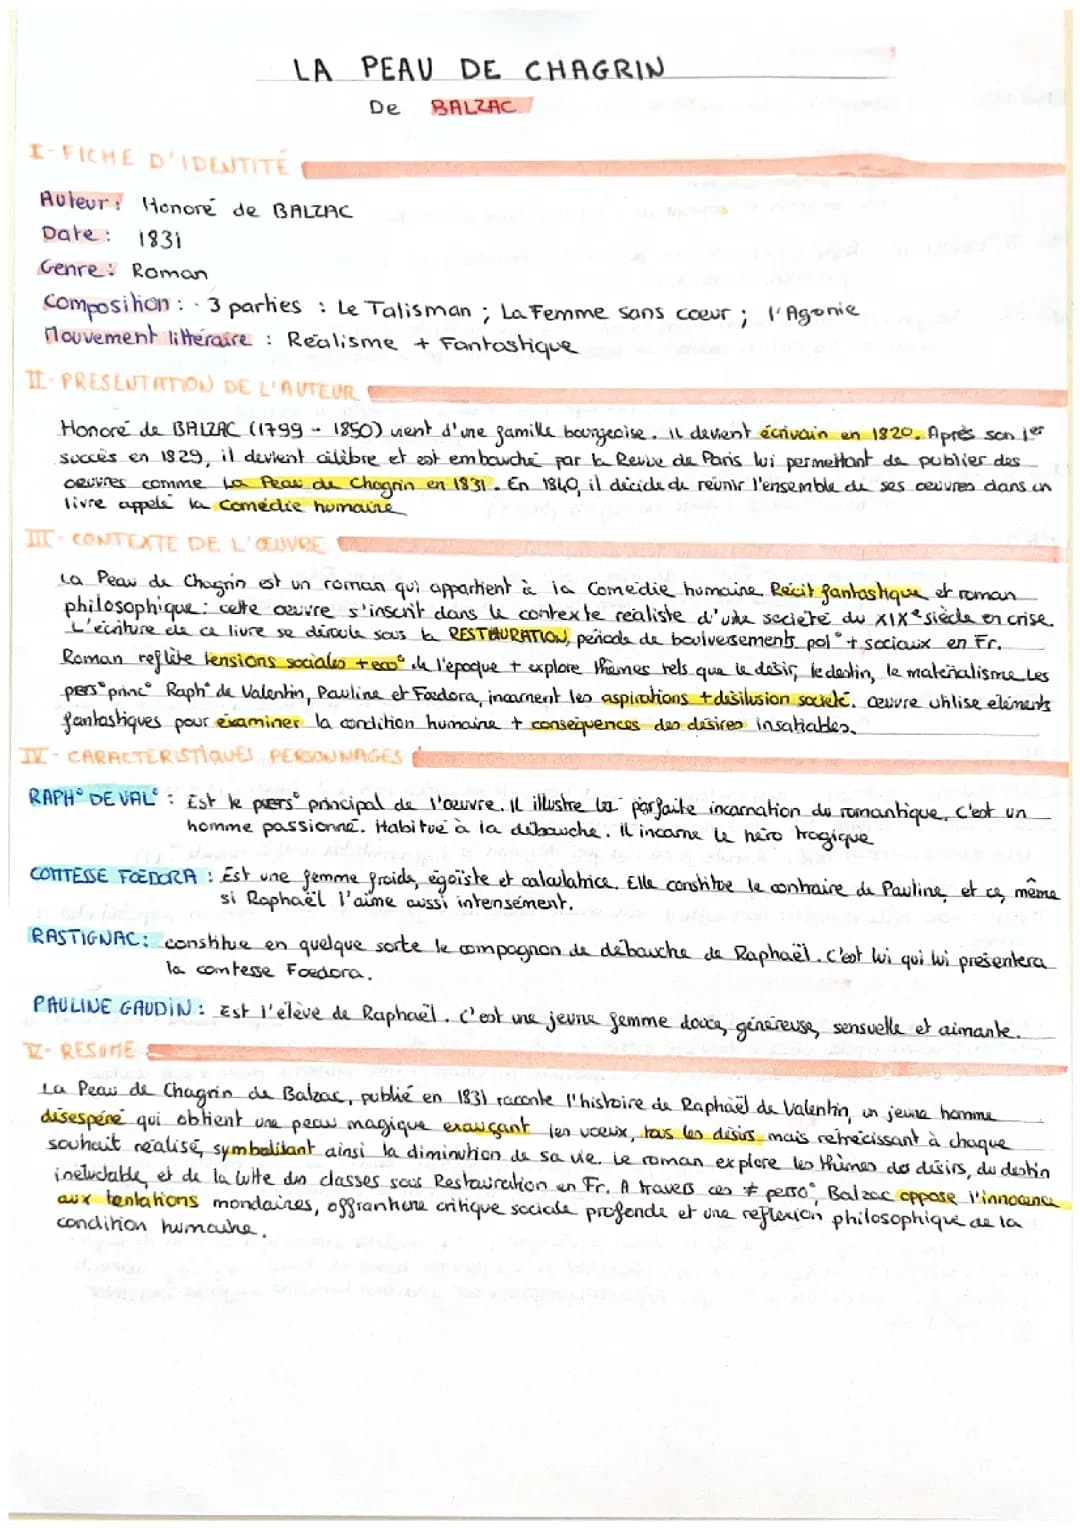 LA PEAU DE CHAGRIN
De BALZAC
I- FICHE D'IDENTITÉ
Auteur : Honoré de BALZAC
Date : 1831
Genre : Roman
Composition : · 3 parties : Le Talisman ; La Femme sans coeur ; l'Agonie
Mouvement littéraire : Réalisme + Fantastique
II- PRESENTATION DE L'AUTEUR
Honoré de BALZAC (1799 - 1850) vient d'une famille bourgeoise. Il devient écrivain en 1820. Après son 1er
succès en 1829, il devient célèbre et est embauché par la Revue de Paris lui permettant de publier des
oeuvres comme La Peau de Chagrin en 1831. En 1840, il décide de réunir l'ensemble de ses oeuvres dans un
livre appelé la Comédie humaine
III- CONTEXTE DE L'OEUVRE
La Peau de Chagrin est un roman qui appartient à la Comédie humaine. Récit fantastique et roman
philosophique : cette oeuvre s'inscrit dans le contexte réaliste d'une société du XIXe siècle en crise.
L'écriture de ce livre se déroule sous la RESTAURATION, période de bouleversements pol° + sociaux en Fr.
Roman reflète tensions sociales + eco° de l'époque + explore thèmes tels que le désir, le destin, le matérialisme. Les
pers° princ° Raph° de Valentin, Pauline et Foedora, incarnent les aspirations + désilusion société. oeuvre utilise éléments
fantastiques pour examiner la condition humaine + conséquences des désires insatiables.
IV- CARACTERISTIQUES PERSONNAGES
RAPH° DE VAL° : Est le perso° principal de l'oeuvre. Il illustre la parfaite incarnation du romantique, c'est un
homme passionné. Habitué à la débauche. Il incarne le héro tragique
COMTESSE FOEDORA : Est une femme froide, égoïste et calculatrice. Elle constitue le contraire de Pauline, et ce, même
si Raphaël l'aime aussi intensément.
RASTIGNAC : constitue en quelque sorte le compagnon de débauche de Raphaël. C'est lui qui lui présentera
la comtesse Foedora.
PAULINE GAUDIN : Est l'élève de Raphaël. C'est une jeune femme douce, généreuse, sensuelle et aimante.
V- RESUME
La Peau de Chagrin de Balzac, publié en 1831 raconte l'histoire de Raphaël de Valentin, un jeune homme
désespéré qui obtient une peau magique exauçant les voeux, tous les désirs mais rétrécissant à chaque
souhait réalisé, symbolisant ainsi la diminution de sa vie. Le roman explore les thèmes des désirs, du destin
inéluctable, et de la lutte des classes sous Restauration en Fr. A travers ces ≠ perso°, Balzac oppose l'innocence
aux tentations mondaines, offrant une critique sociale profonde et une réflexion philosophique de la
condition humaine.